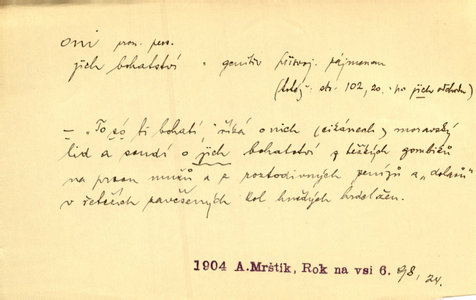 oni pron. pers.
jich bohatství = genitiv přivoj. zájmenam
(též: str. 102, 20. po jich odchodu)
– „To só ti bohatí," říká o nich (cikánech) moravský
lid a soudí o jich bohatství z těžkých gombíků
na prsou mužů a z roztodivných penízů a „dolarů"
v řetězích zavěšených kol hnědých hrdel žen.
1904 A.Mrštík, Rok na vsi 6. 98, 24.